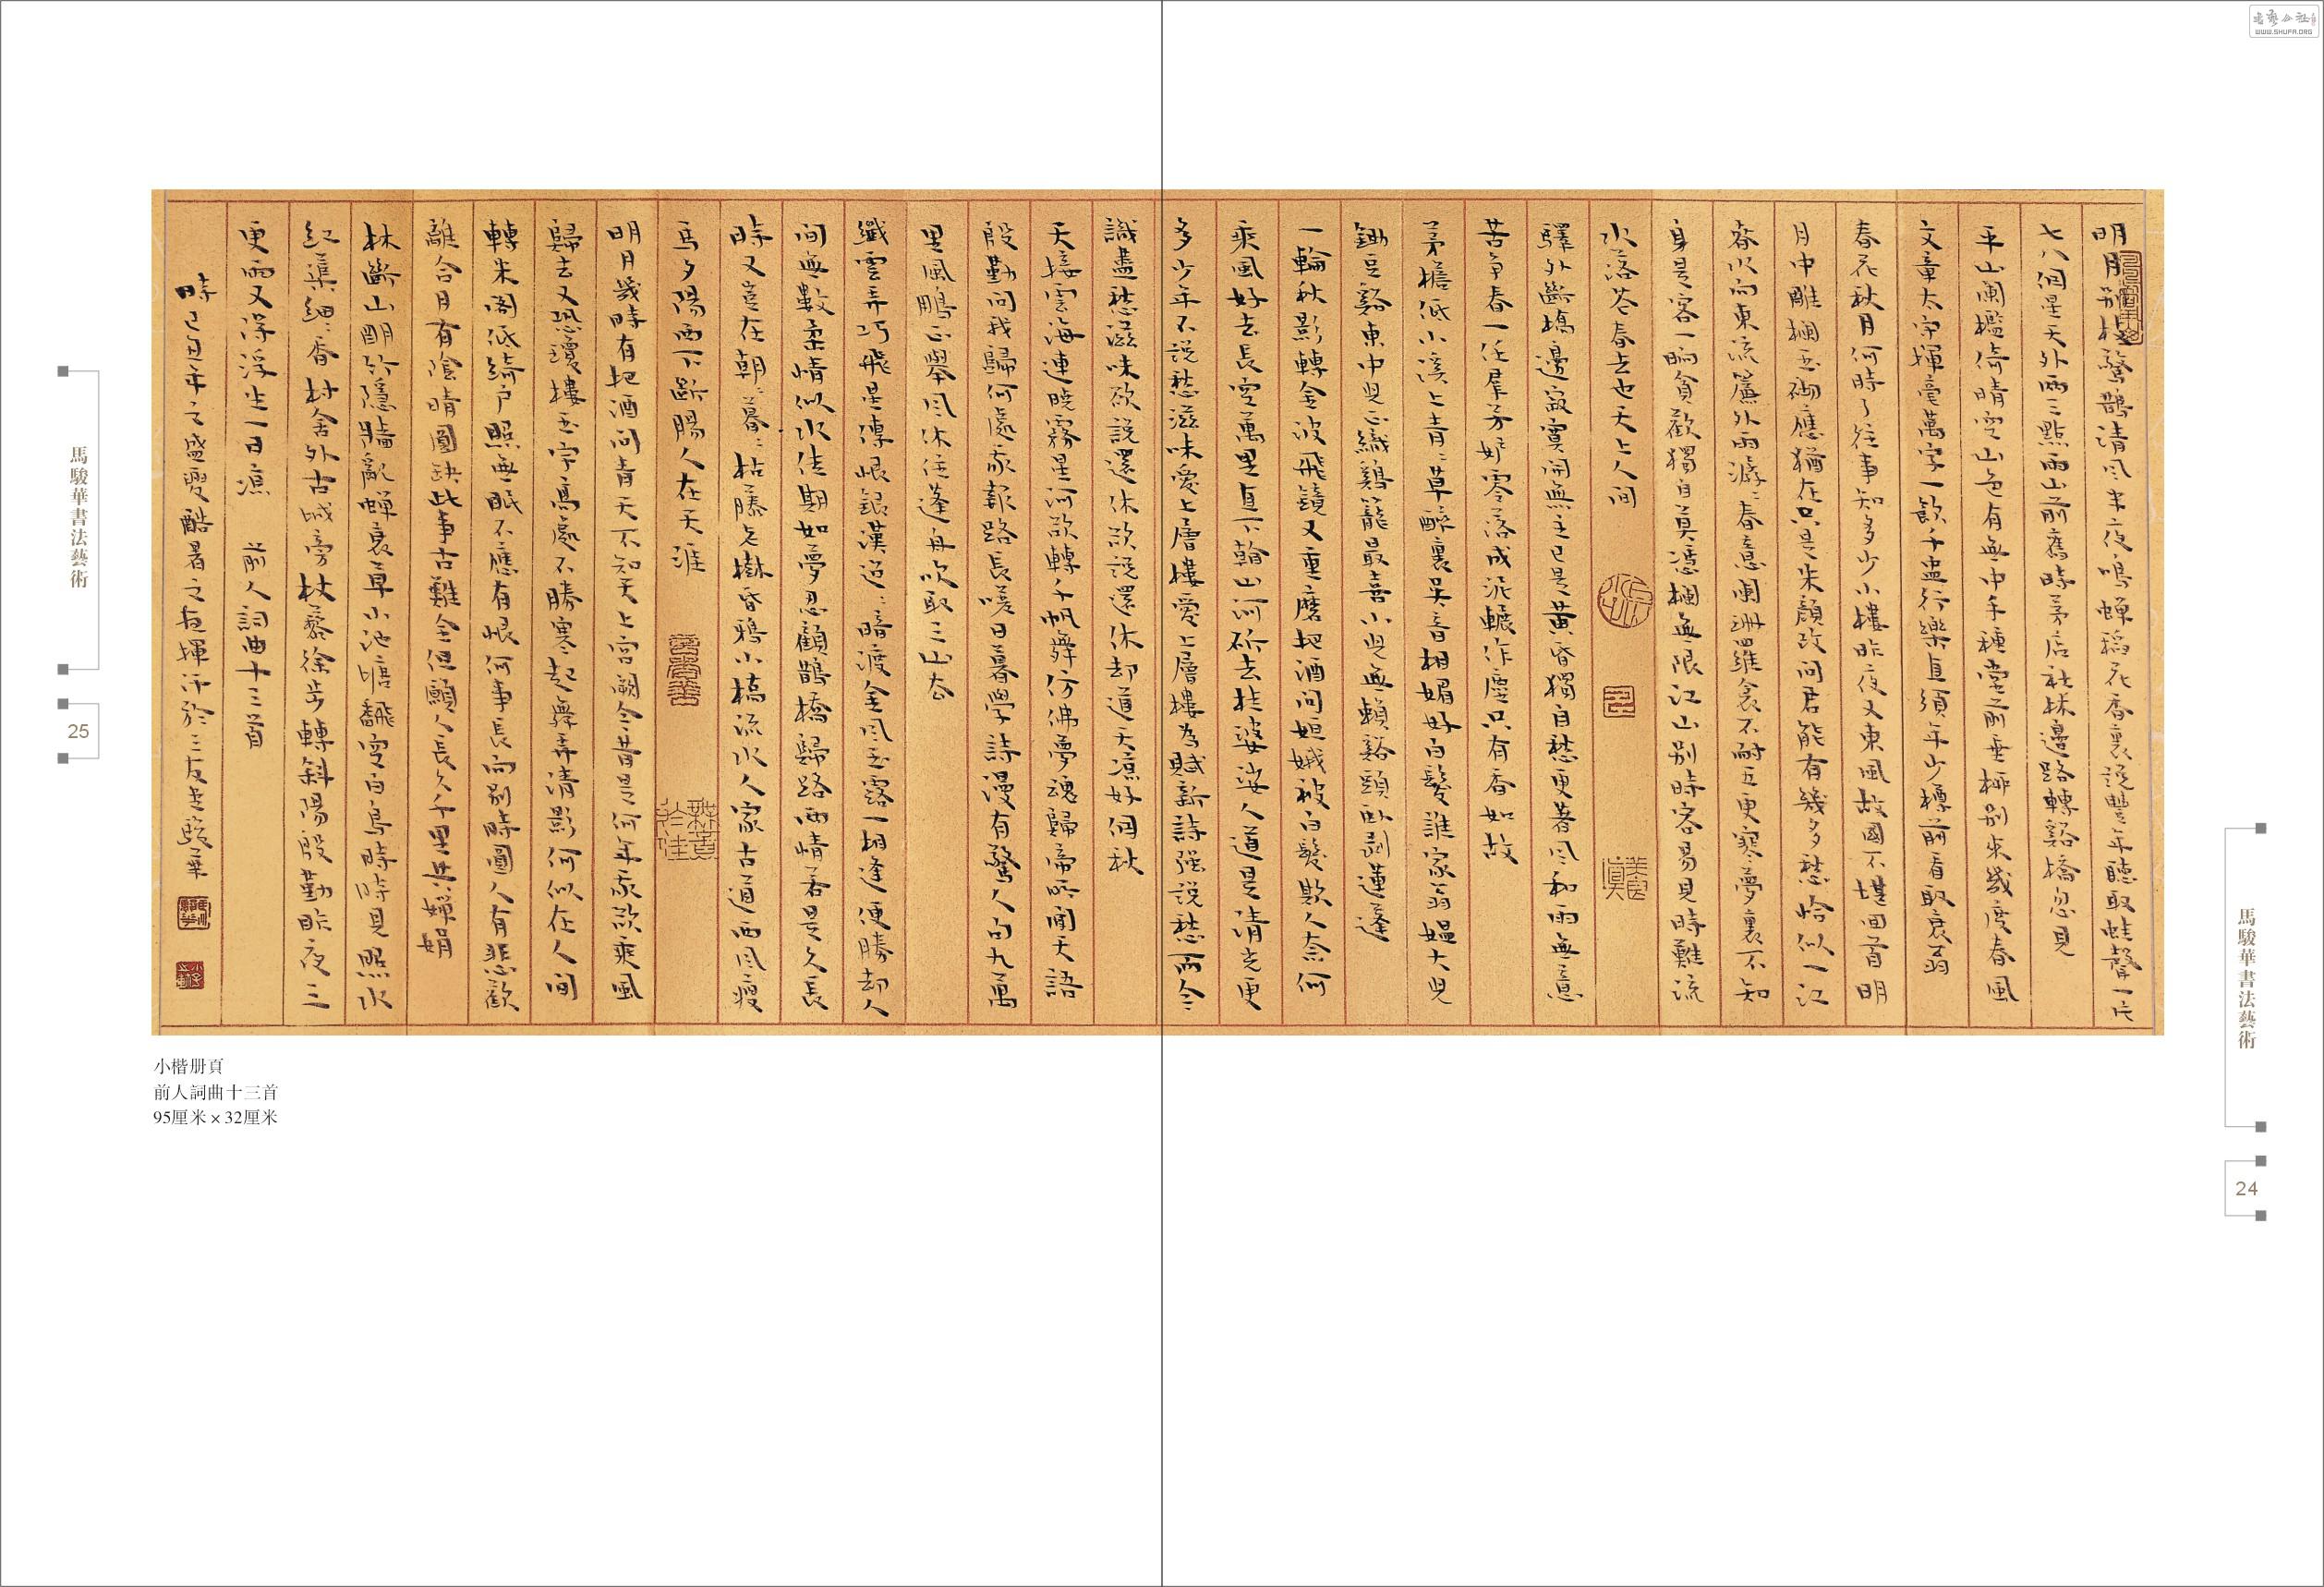 明月別枝驚鵲清风半夜鳴蟬稻花香裏說豐年聽取蛙聲一片
七八個星天外兩三點雨山前舊時茅店社林邊路轉谿橋忽見
平山闌檻倚晴空山色有無中手種堂前垂柳別來幾度春風
文章太守揮毫萬字一飲千盅行樂直須年少樽前看取衰翁
春花秋月何時了往事知多少小樓昨夜又東風故國不堪回首明
月中雕欄玉砌應猶在只是朱顏改問君能有幾多愁恰似一江
春水向東流簾外雨潺〻春意闌珊羅衾不耐五更寒夢裏不知
身是客一晌貪歡獨自莫憑欄無限江山別時容易見時難流
水落花春去也天上人间
驛外斷橋邊寂寞開無主已是黃昏獨自愁更著风和雨無意
苦爭春一任羣芳妒零落成泥輾作塵只有香如故
茅檐低小溪上青〻草醉裏吳音相媚好白髮誰家翁媼大兒
鋤豆谿東中兒正織鷄籠最喜小兒無賴谿頭臥剝蓮蓬
一輪秋影轉金波飛鏡又重磨把酒问姮娥被白髮欺人奈何
乘風好去長空萬里直下翰山河斫去桂婆娑人道是清光更
多少年不說愁滋味愛上層樓愛上層樓為賦新詩强說愁而今
識盡愁滋味欲說還休欲說還休却道天凉好個秋
天接雲海連曉霧星河欲轉千帆舞仿佛夢魂歸帝所聞天語
殷勤问我歸何處我報路長嗟日暮學詩漫有驚人句九萬
里風鵬正舉风休住蓬舟吹取三山去
纖雲弄巧飛星傳恨銀漢迢〻暗渡金风玉露一相逢便勝却人
间無數柔情似水佳期如夢忍顧鵲橋歸路兩情若是久長
時又豈在朝〻暮〻枯藤老樹昏鴉小橋流水人家古道西风瘦
馬夕陽西下斷腸人在天涯
明月幾時有把酒问青天不知天上宫闕今昔是何年我欲乘風
歸去又恐瓊樓玉宇高處不勝寒起舞弄清影何似在人间
轉朱阁低綺户照無眠不應有恨何事長向別時圓人有悲歡
離合月有陰晴圓缺此事古難全但願人長久千里共嬋娟
林斷山明竹隱牆亂蟬衰草小池塘翻空白鳥時時見照水
紅蕖細〻香村舍外古城旁杖藜徐步轉斜陽殷勤昨夜三
更雨又得浮生一日凉 前人詞曲十三首
時己丑年之盛夏酷暑之夜揮汗於三友堂駿華
小楷册頁
前人詞曲十三首
95厘米×32厘米
馬駿華書法藝術
25
馬駿華書法藝術
24
WWW.SHUFA.ORG